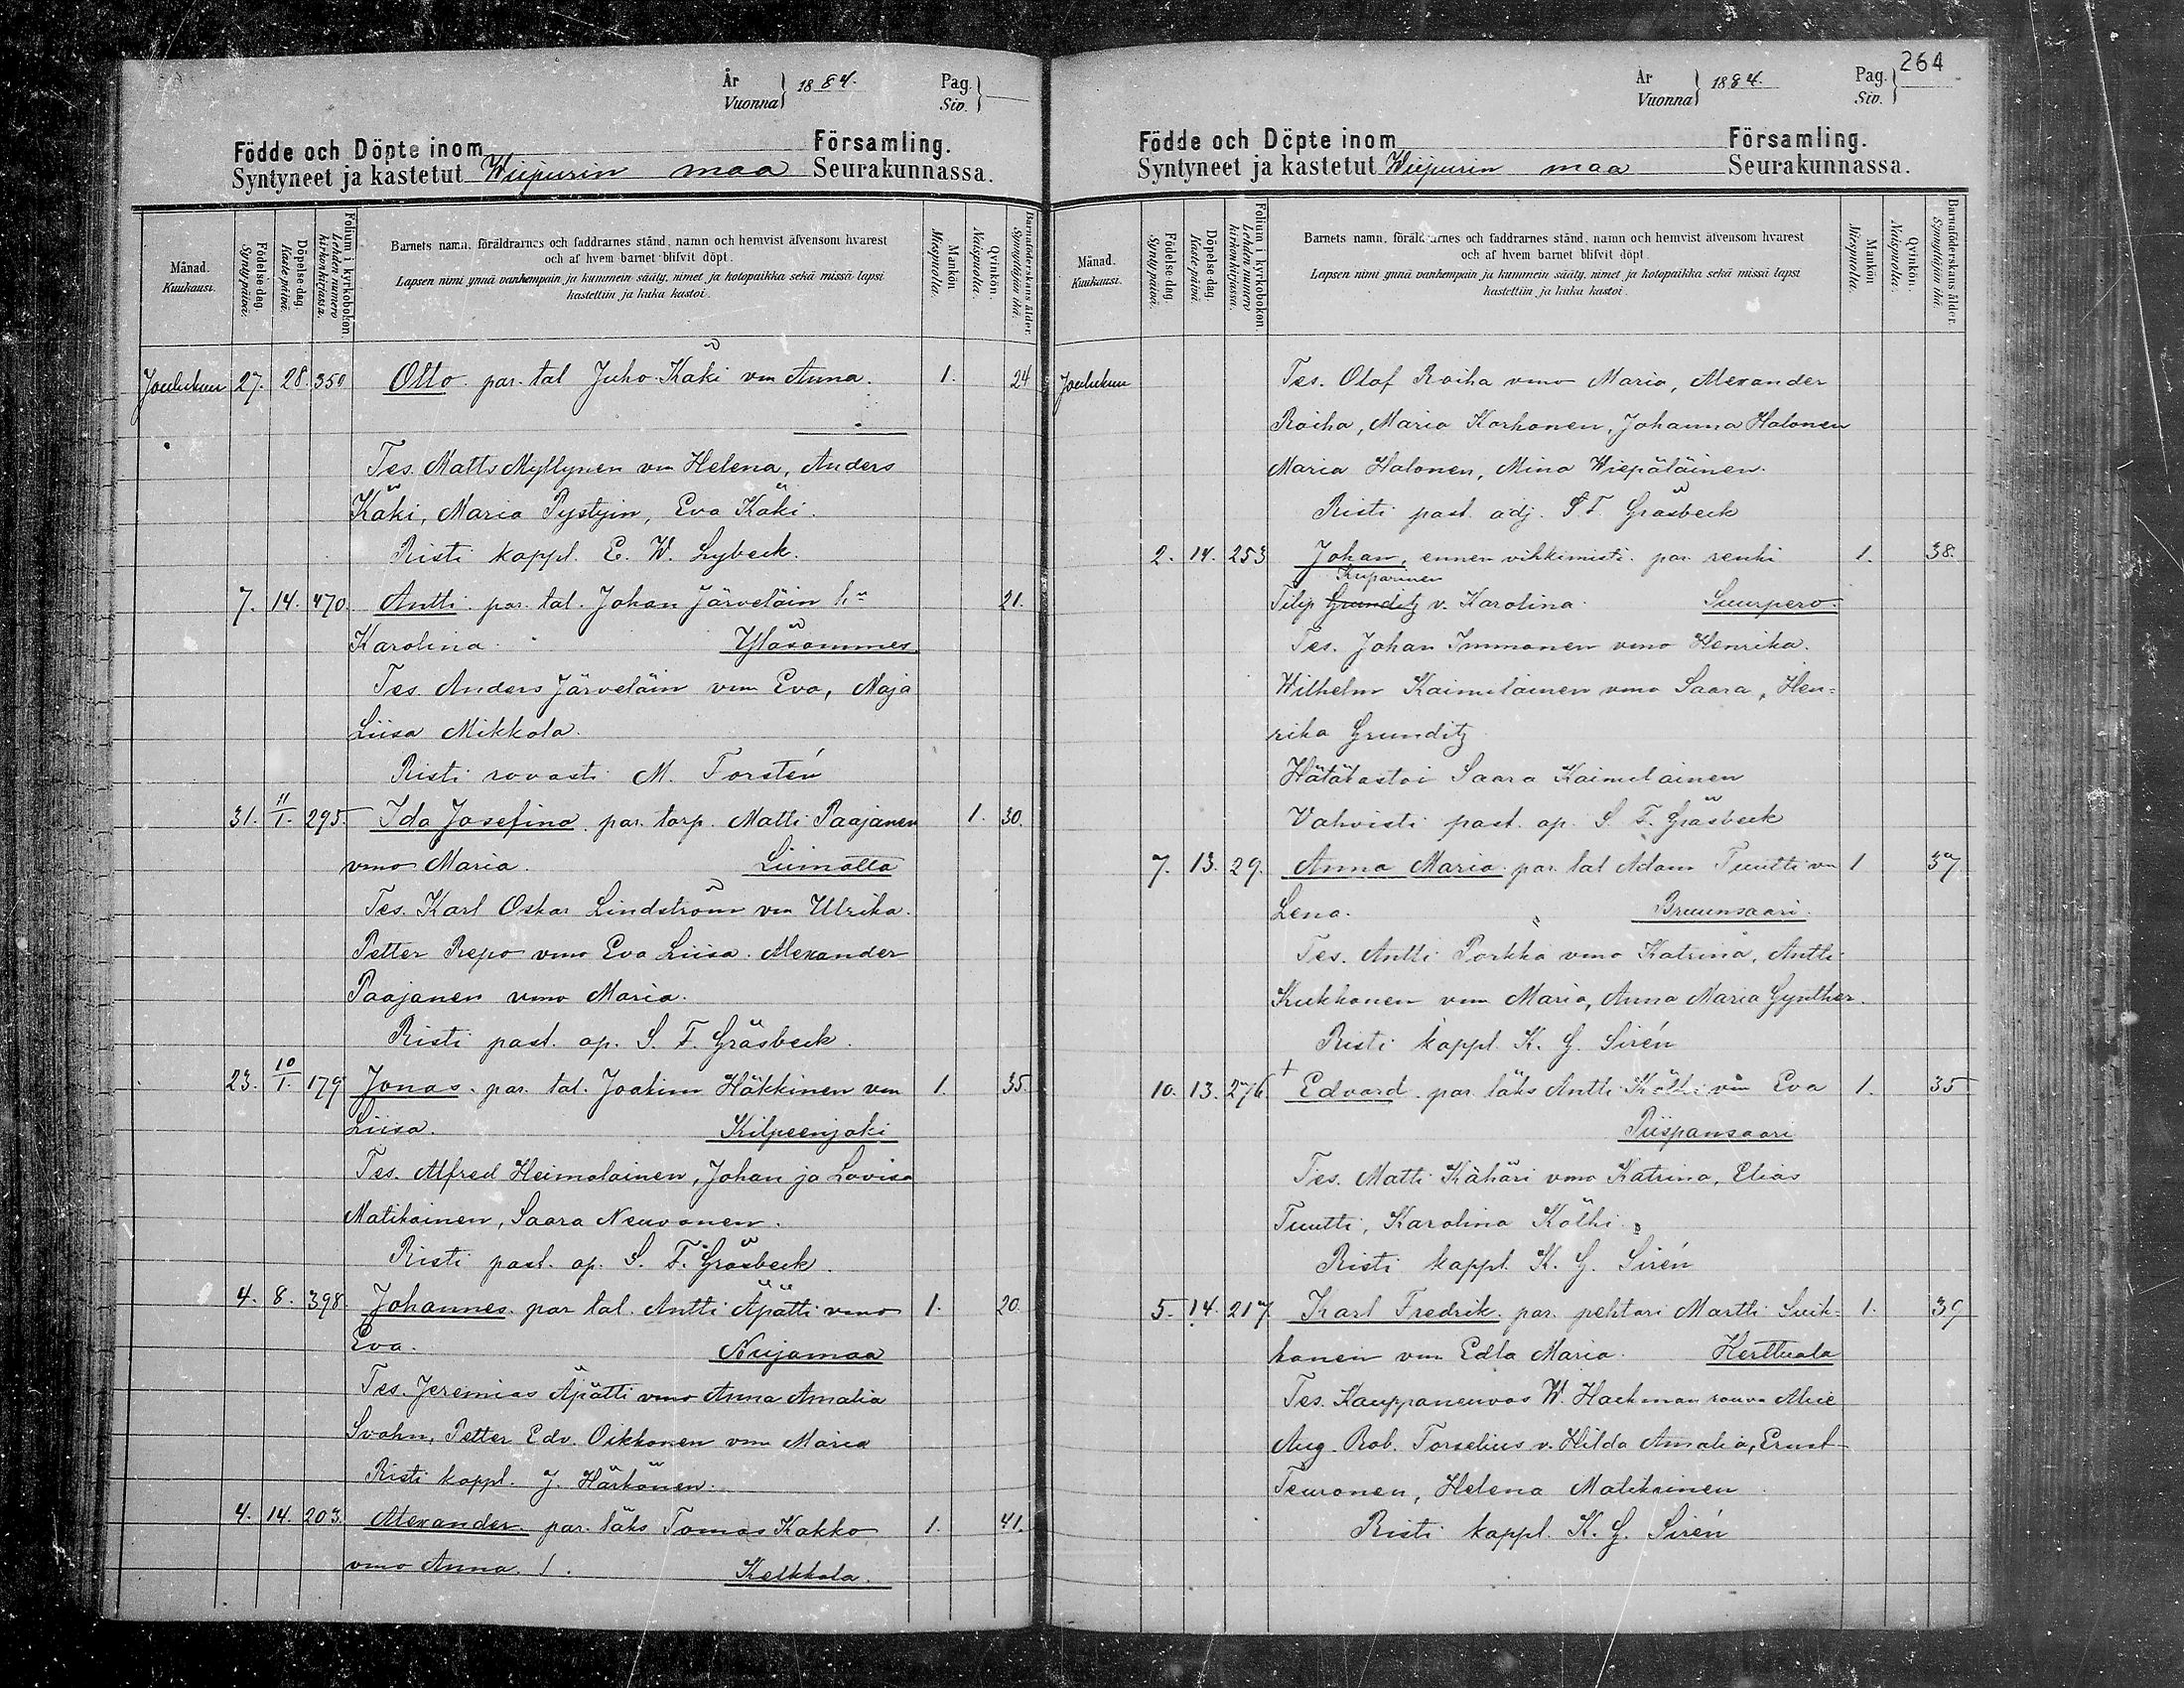 År
Vuonna } 1884.
Pag.
Siv. }
Födde och Döpte inom Församling.
Syntyneet ja kastetut Wiipurin maa Seurakunnassa.
Månad.
Kuukausi.
Födelse-dag.
Syntypäivä.
Döpelse-dag.
Kastepäivä.
Folium i kyrkoboken.
Lehden numero kirkonkirjassa.
Barnets namn, föräldrarnes och faddrarnes stånd, namn och hemvist äfvensom hvarest
och af hvem barnet blifvit döpt.
Lapsen nimi ynnä vanhempain ja kummein sääty, nimet ja kotopaikka sekä missä lapsi
kastettiin ja kuka kastoi.
Mankön.
Miespuolia.
Qvinkön.
Naispuolia.
Barnaföderskans ålder.
Synnyttäjän ikä.
Joulukuu 27. 28. 350 Otto par. tal Juho Käki vm Anna. 1. 24
Tes. Matts Myllynen vm Helena, Anders
Käki, Maria Pystyin, Eva Käki.
Risti kappl. E. W. Lybeck.
7. 14. 470. Antti par. tal. Johan Järveläin hra 21.
Karolina. Yläsommes
Tes. Anders Järveläin vm Eva, Maja
Liisa Mikkola.
Risti rovasti M. Forstén
31. 11/1. 295. Ida Josefina par. torp. Matti Paajanen 1. 30.
vmo Maria. Liimatta
Tes. Karl Oskar Lindström vm Ulrika.
Petter Repo vmo Eva Liisa. Alexander
Paajanen vmo Maria.
Risti past. ap. S. F. Gräsbeck.
23. 10/1. 179 Jonas. par. tal. Joakim Häkkinen vm 1. 35.
Liisa. Kilpeenjoki
Tes. Alfred Heimolainen, Johan ja Lovisa
Matikainen, Saara Neuvonen.
Risti past. ap. S. F. Gräsbeck.
4. 8. 398. Johannes par tal. Antti Äpätti vmo 1. 20.
Eva. Nuijamaa
Tes. Jeremias Äpätti vmo Anna Amalia
Svahn, Petter Edv. Oikkonen vm Maria
Risti kappl. J. Härkönen.
4. 14. 203. Alexander par. läks Tomas Kakko 1. 41.
vmo Anna. 1. Kelkkala.
264
År
Vuonna } 1884.
Pag.
Siv. }
Födde och Döpte inom Församling.
Syntyneet ja kastetut Wiipurin maa Seurakunnassa.
Månad.
Kuukausi.
Födelse-dag.
Syntypäivä.
Döpelse-dag.
Kastepäivä.
Folium i kyrkoboken.
Lehden numero kirkonkirjassa.
Barnets namn, föräldrarnes och faddrarnes stånd, namn och hemvist äfvensom hvarest
och af hvem barnet blifvit döpt.
Lapsen nimi ynnä vanhempain ja kummein sääty, nimet ja kotopaikka sekä missä lapsi
kastettiin ja kuka kastoi.
Mankön
Miespuolia.
Qvinkön.
Naispuolia.
Barnaföderskans ålder.
Synnyttäjän ikä.
Joulukuu Tes. Olof Roiha vmo Maria, Alexander
Roiha, Maria Korhonen, Johanna Halonen
Maria Halonen, Mina Wiepäläinen.
Risti past. adj. S. F. Gräsbeck
2. 14. 253 Johan, ennen vihkimisti. par renki 1. 38.
Kuparinen
Filip Grunditz v. Karolina. Suurpero.
Tes. Johan Immonen vmo Henrika.
Wilhelm Kaimolainen vmo Saara, Hen-
rika Grunditz
Hätäkastoi Saara Kaimolainen
Vahvisti past. ap. S. F. Gräsbeck
7. 13. 29. Anna Maria par. tal Adam Tuutti vm 1 37
Lena. Bruunsaari.
Tes. Antti Porkka vmo Katrina, Antti
Kukkonen vm Maria, Anna Maria Gynther.
Risti kappl. K. G. Sirén
10. 13. 276 + Edvard par. läks Antti Kölhi vm Eva 1. 35
Piispansaari
Tes. Matti Kähäri vmo Katrina, Elias
Tuutti, Karolina Kölhi.
Risti kappl. K. G. Sirén
5. 14. 217. Karl Fredrik. par. pehtori Martti Suik- 1. 39
kanen vm Edla Maria. Herttuala
Tes. Kauppaneuvos W. Hackman rouva Alice
Aug. Rob. Torselius v. Hilda Amalia, Ernst
Teuronen, Helena Matikainen
Risti kappl. K. G. Sirén